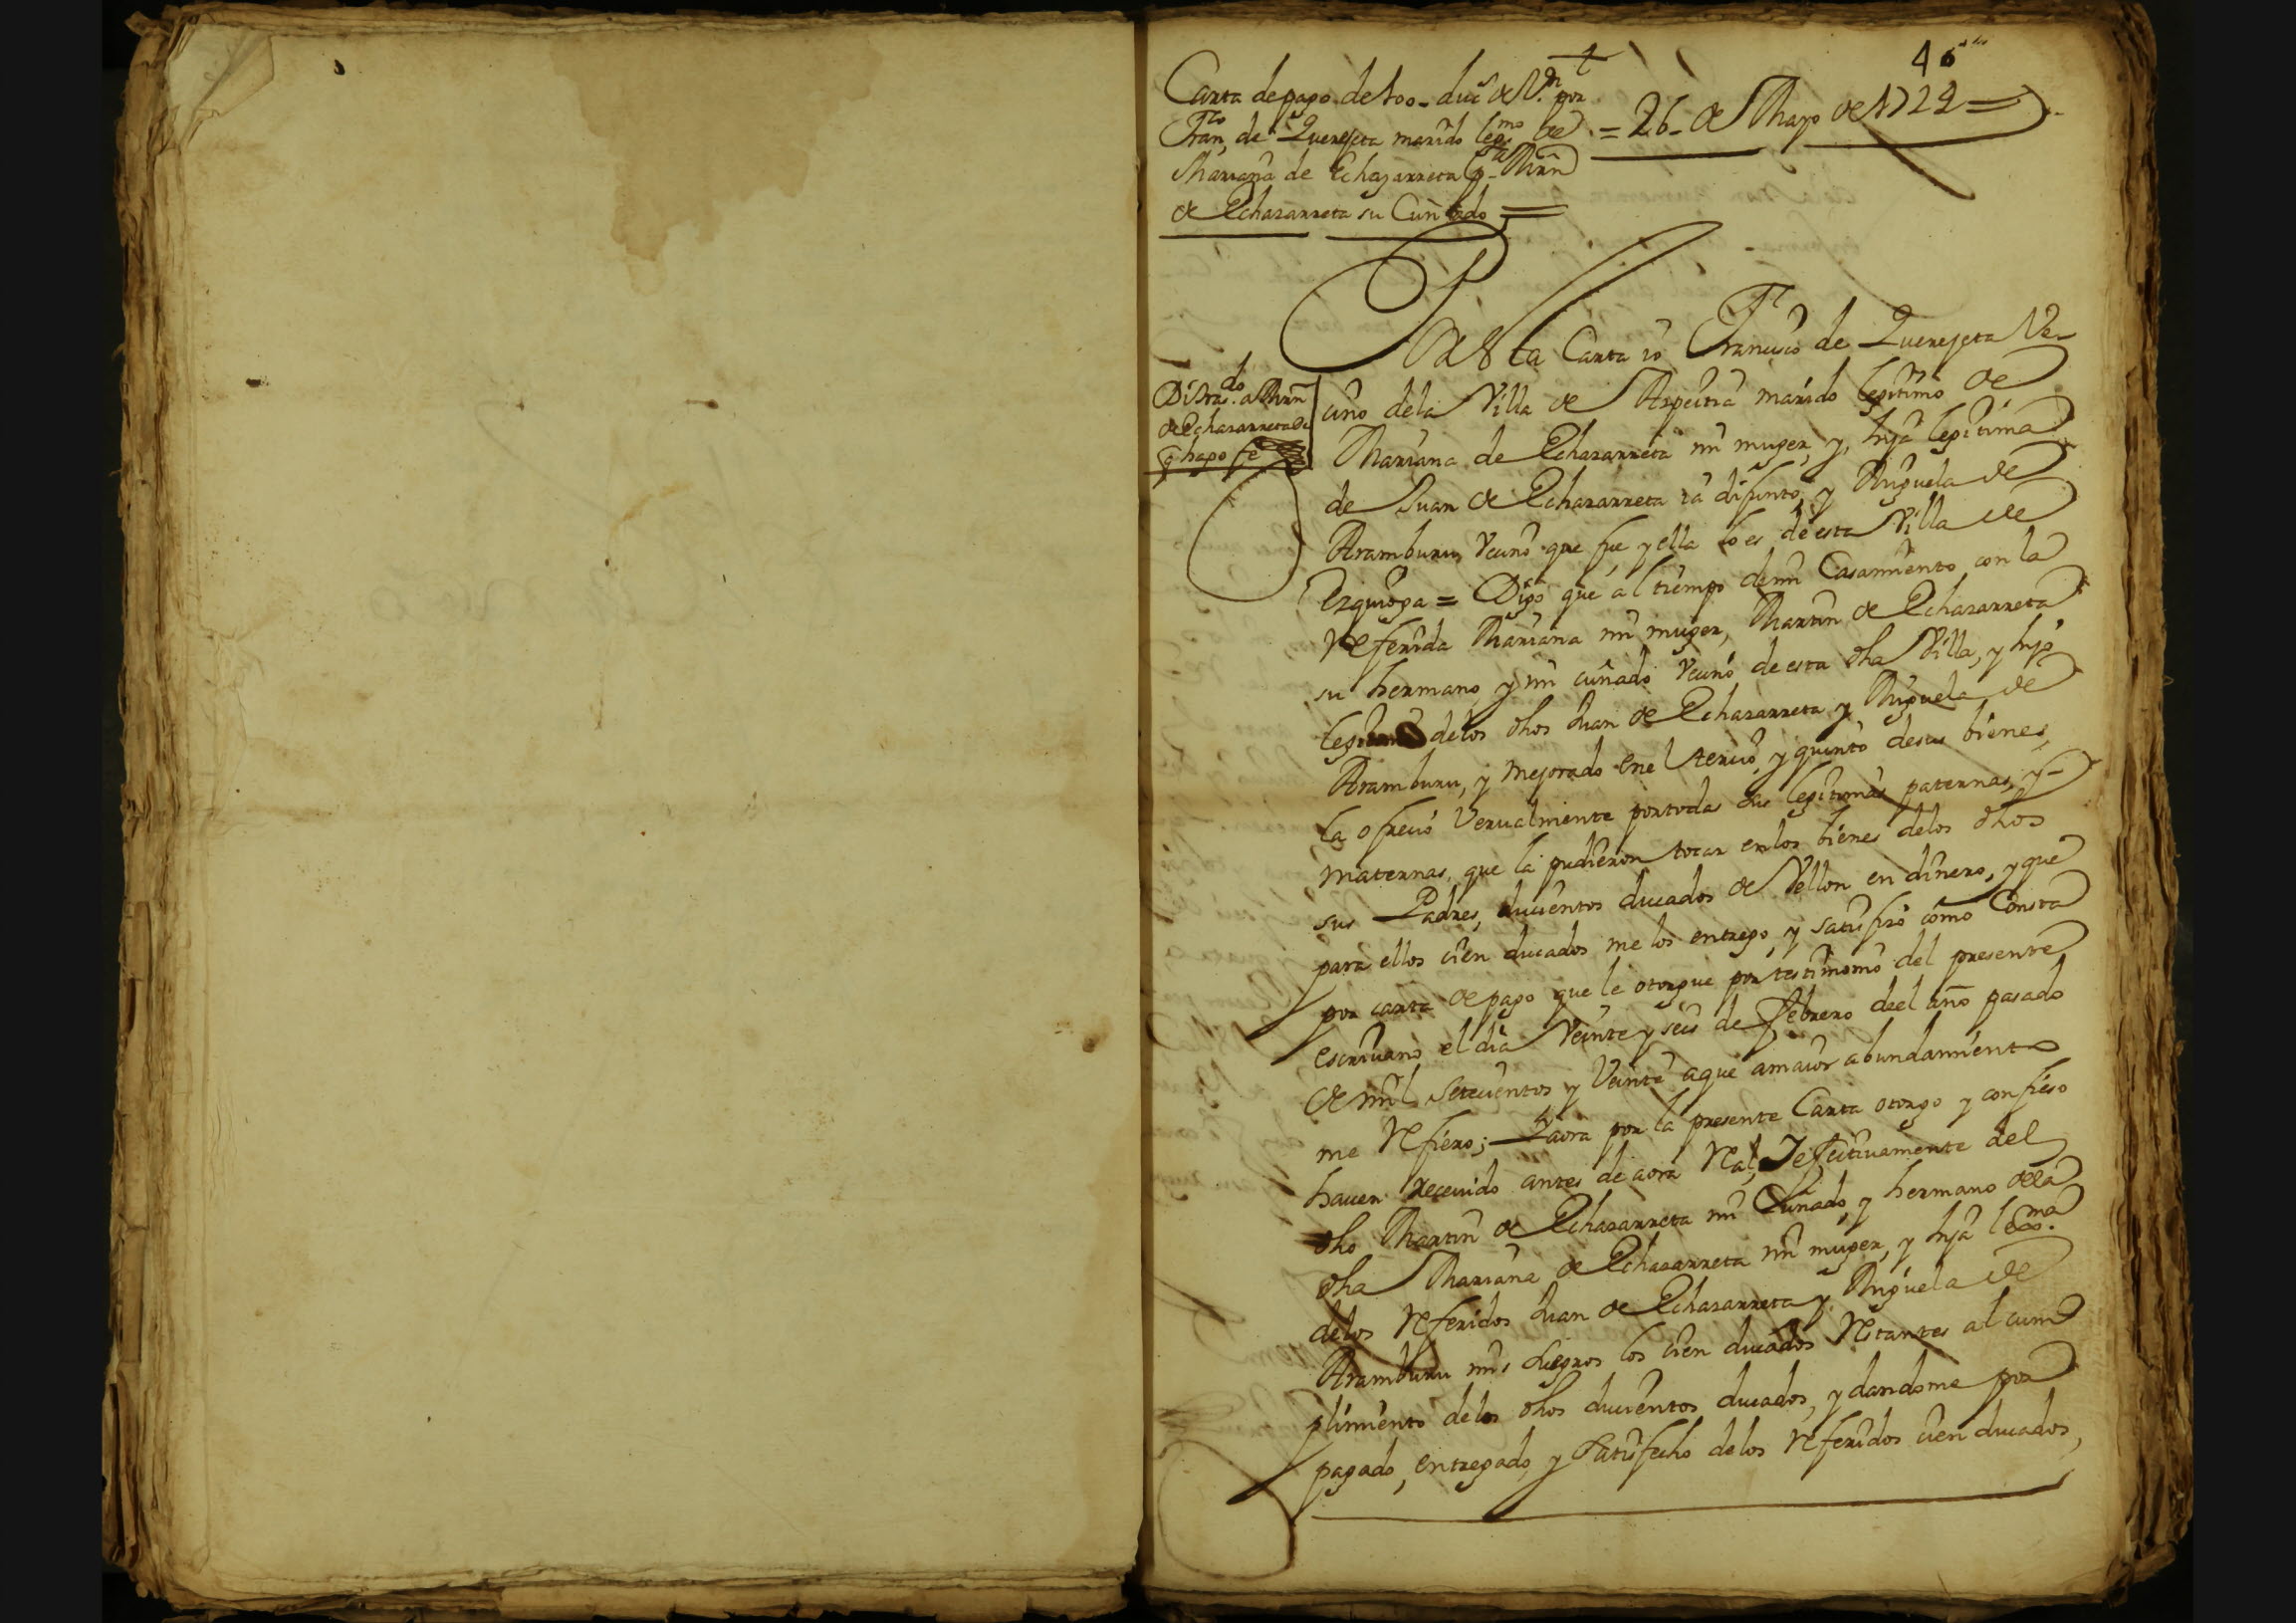 46
Carta de pago de 100 duc.s de V.on por
Fran.co de Querejeta marido leg.mo de
Mariana de Echazarreta A Mrn
de Echazarreta su Cuñado =
= 26 de Mayo de 1722 =
Por esta Carta io Francisco de Querejeta Ve-
cino de la Villa de Azpeitia marido legitimo de
Mariana de Echazarreta mi muger, y hija legitima
de Juan de Echazarreta ia difunto, y Miguela de
Aramburu, Vecino que fue, y ella lo es de esta Villa de
Ezquioga = Digo que al tiempo de mi Casamiento con la
Referida Mariana mi muger, Martin de Echazarreta
su hermano, y mi cuñado Vecino de esta dha Villa, y hijo
legitimo de los dhos Juan de Echazarreta y Miguela de
Aramburu, y mejorado en el tercio, y quinto de sus bienes,
la ofrecio Vervalmente por todas sus legitimas paternas, y
maternas, que la pudieron tocar en los bienes de los dhos
sus Padres, ducientos ducados de Vellon en dinero, y que
para ellos cien ducados me los entrego, y satisfizo como Consta
por carta de pago que le otorgue por testimonio del presente
escrivano el dia Veinte y seis de Febrero de el año pasado
de mil setecientos y Veinte a que a maior abundamiento
me Refiero; I aora por la presente Carta otorgo y confieso
haver recevido antes de aora Real, I efectivamente del
dho Martin de Echazarreta mi Cuñado, y hermano de la
dha Mariana de Echazarreta mi muger, y hija leg.ma
de los Referidos Juan de Echazarreta y Miguela de
Aramburu mis suegros los cien ducados Restantes al cum
plimiento de los dhos ducientos ducados, y dandome por
pagado, entregado, y satisfecho de los Referidos cien ducados,
Di tras.do a Mrn
de Echazarreta de
q hago fe